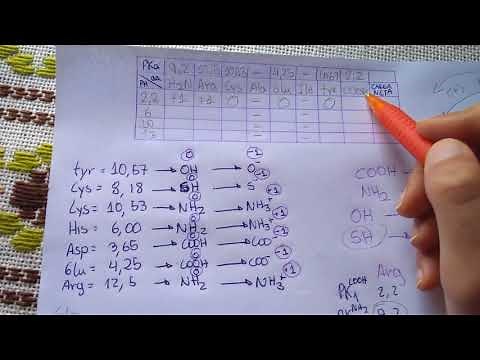 PKa 9,2 12,5 10,53 – 4,25 – 10,57 2,2
PH aa H₂N Arg Lys Ala Glu Ile tyr COOH CARGA NETA
2,2 +1 +1 0 – 0 – 0
6 – –
10 – –
– –
0 -1
tyr = 10,57 → OH → O⁻
0 -1
Cys = 8,18 → SH → S⁻
0 +1
Lys = 10,53 → NH₂ → NH₃⁺
0 +1
His = 6,00 → NH₂ → NH₃⁺
0 -1
Asp = 3,65 → COOH → COO⁻
0 -1
Glu = 4,25 → COOH → COO⁻
0 +1
Arg = 12,5 → NH₂ → NH₃⁺
COOH
NH₂
OH
SH
Arg
PK₁ COOH 2,2
NH₂